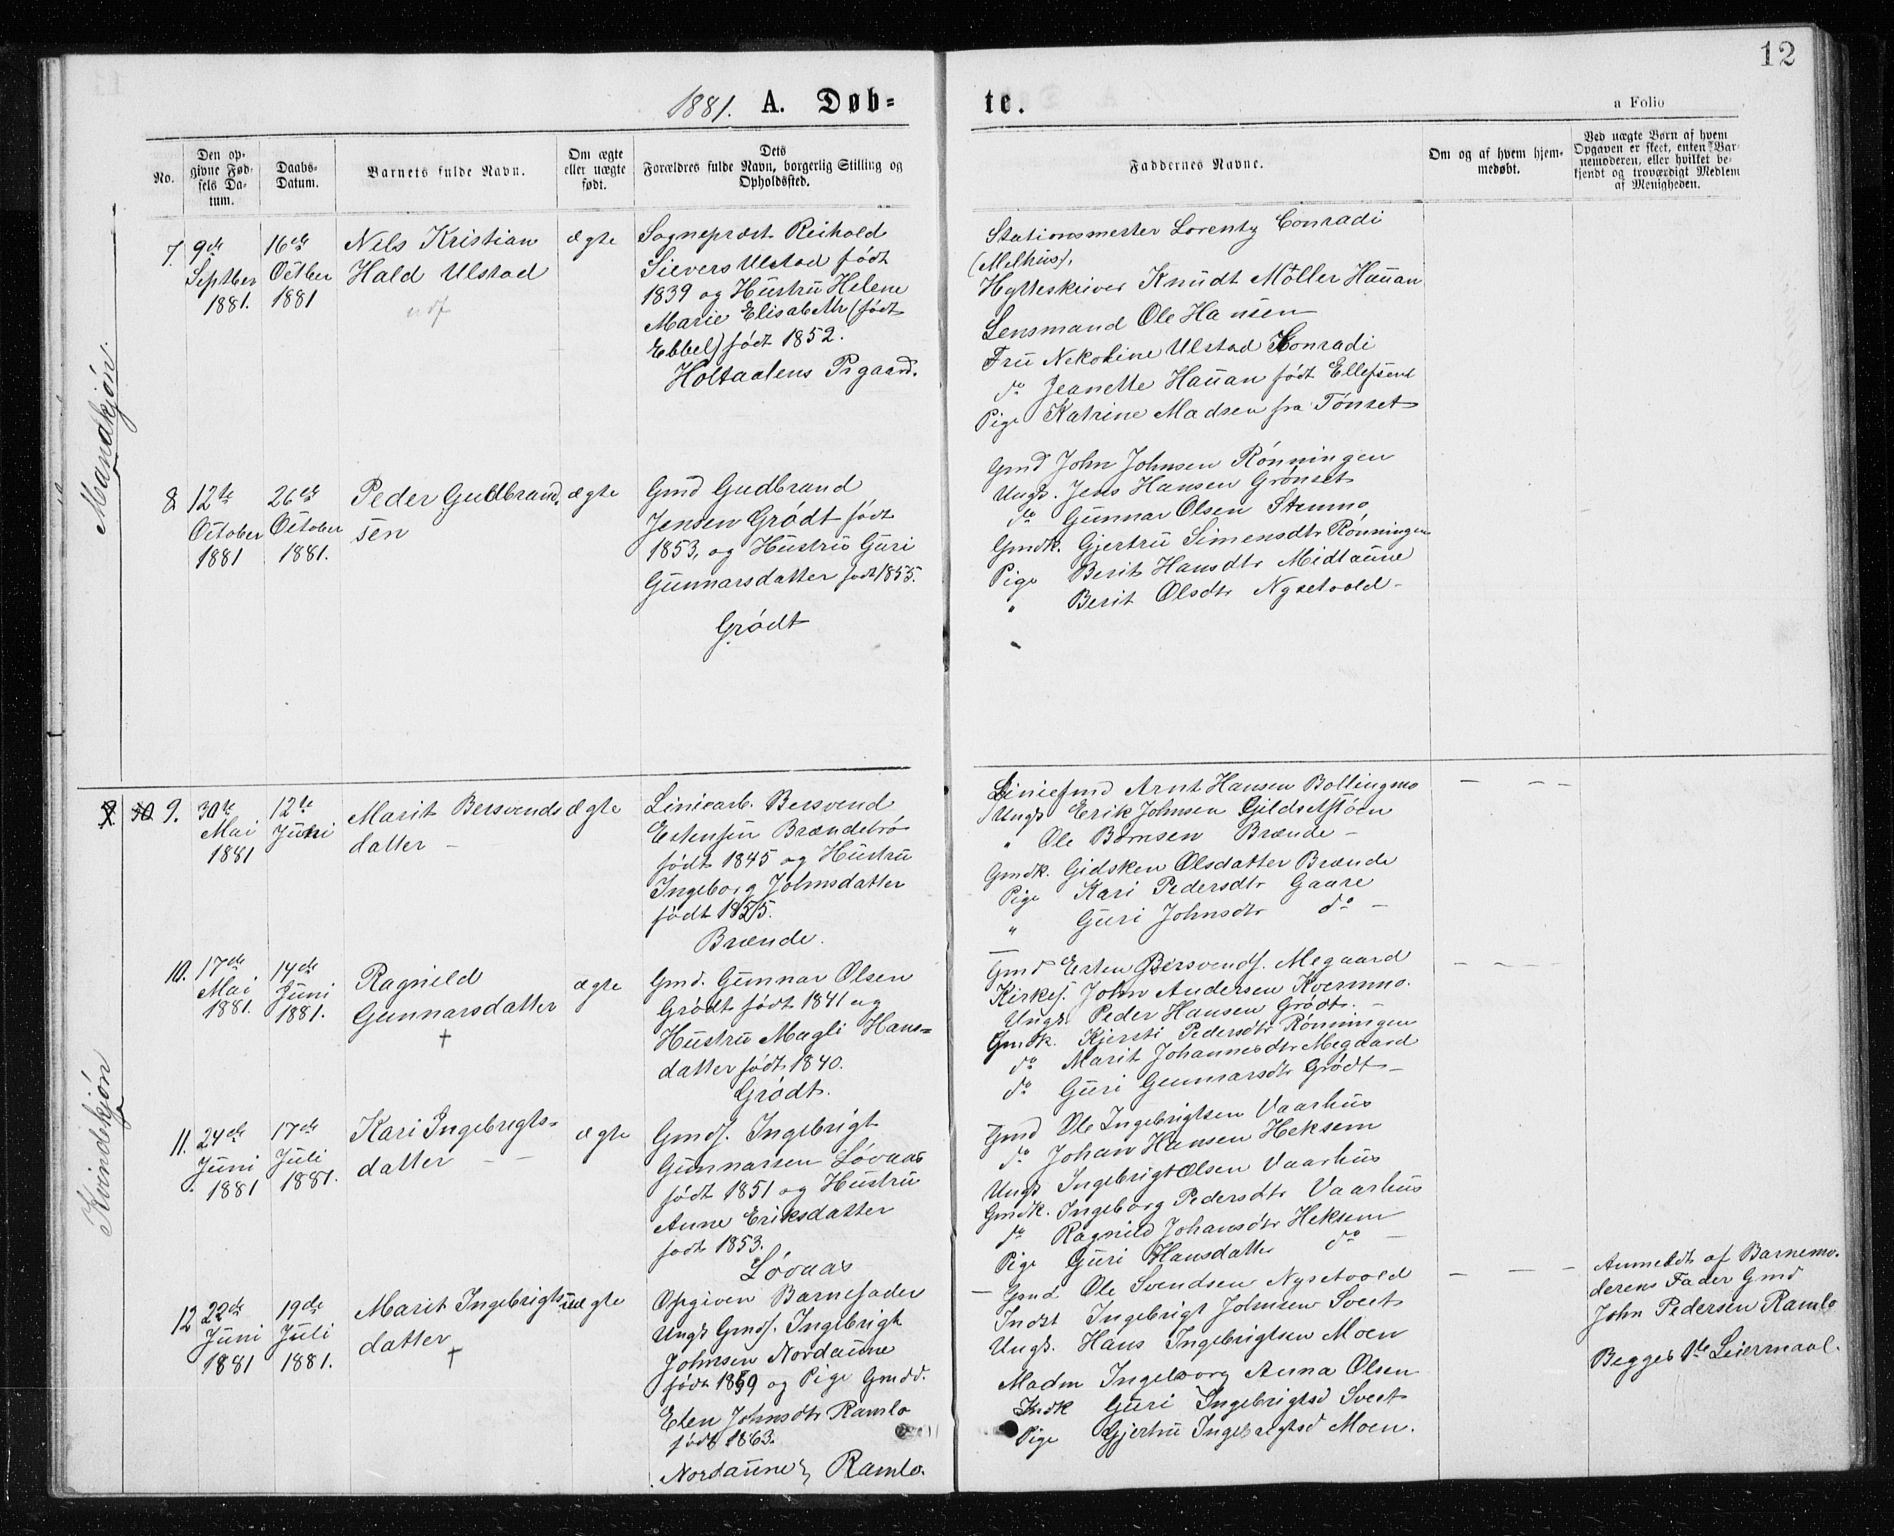 12
1881. A. Døb=
te.
a Folio
No.
Den op-
givne Fød-
sels Da-
tum.
Daabs-
Datum.
Barnets fulde Navn.
Om ægte
eller uægte
født.
Dets
Forældres fulde Navn, borgerlig Stilling og
Opholdssted.
Faddernes Navne.
Om og af hvem hjem-
medøbt.
Ved uægte Børn af hvem
Opgaven er skeet, enten Bar-
nemoderen, eller hvilket be-
kjendt og troværdigt Medlem
af Menigheden.
Mandkjøn.
7.
9de
Septber
1881.
16de
Octber
1881
Nils Kristian
Hald Ulstad
ægte
Sognepræst Reihold
Sievers Ulstad født
1839 og Hustru Helene
Marie Elisabeth (født
Ebbel) født 1852.
Holtaalens Prgaard.
Stationsmester Lorentz Conradi
(Melhus),
Hytteskriver Knudt Møller Hauan
Lensmand Ole Hansen
Fru Nikoline Ulstad Konradi
do Jeanette Hauan født Ellefsen
Pige Katrine Madsen fra Tønset
8
12te
October
1881
26de
October
1881.
Peder Guldbrand-
sen
ægte
Gmd Gudbrand
Jensen Grødt født
1853, og Hustru Guri
Gunnarsdatter født 1855.
Grødt
Gmd John Johnsen Rønningen
Ungk. Jens Hansen Grønset
do Gunnar Olsen Stenmo
Gmdk. Gjertru Simensdtr Rønningen
Pige Berit Hansdtr Midtaune
" Berit Olsdtr Nysetvold -
Kvindekjøn
9.
30te
Mai
1881
12te
Juni
Marit Bersvends
datter -
ægte
Liniearb. Bersvend
Estensen Brændebrø
født 1845 og Hustru
Ingeborg Johnsdatter
født 1855.
Brænde.
Liniefmd Arnt Hansen Bollingmo
Ungk Erik Johnsen Gjildsetstøen
" Ole Børnsen Brænde -
Gmdk. Gidsken Olsdatter Brænde
Pige Kari Pedersdtr Gaare
" Guri Johnsdtr do -
10.
17de
Mai
1881.
14de
Juni
1881.
Ragnild
Gunnarsdatter
†
ægte
Gmd. Gunnar Olsen
Grødt født 1841 og
Hustru Magli Hans=
datter født 1840.
Grødt.
Gmd Esten Bersvends. Megaard
Kirkes. John Andersen Kvernmo.
Ungk Peder Hansen Grødt. -
Gmdk. Kjersti Pedersdtr Rønningen
do Marit Johannesdtr Megaard
do Guri Gunnarsdtr Grødt -
11.
24de
Juni
1881
17de
Juli
1881.
Kari Ingebrigts=
datter - -
ægte
Gmds. Ingebrigt
Gunnarsen Løvaas
født 1851 og Hustru
Anne Eriksdatter
født 1853.
Løvaas
Gmd Ole Ingebrigtsen Vaarhus
do Johan Hansen Heksem
Ungk Ingebrigt Olsen Vaarhus
Gmdk. Ingeborg Pedersdtr Vaarhus
do Ragnild Johansdtr Heksem
Pige Guri Hansdatter do -
12
22de
Juni
1881
19de
Juli
1881.
Marit Ingebrigts
datter
†
uægte
Opgiven Barnefader
Ungk Gmds. Ingebrigt
Johnsen Nordaune
født 1859 og Pige Gmdd.
Elen Johnsdtr Ramlo
født 1863.
Nordaune, Ramlo.
Gmd Ole Svendsen Nysetvold
Indst Ingebrigt Johnsen Sveet
Ungk. Hans Ingebrigtsen Moen
Madm Ingeborg Anna Olsen
Indk Guri Ingebrigtsd Sveet
Pige Gjertru Ingebrigtsd Moen.
Anmeldt af Barnemo-
derens Fader Gmd
John Pedersen Ramlo
Begges 1te Leiermaal.